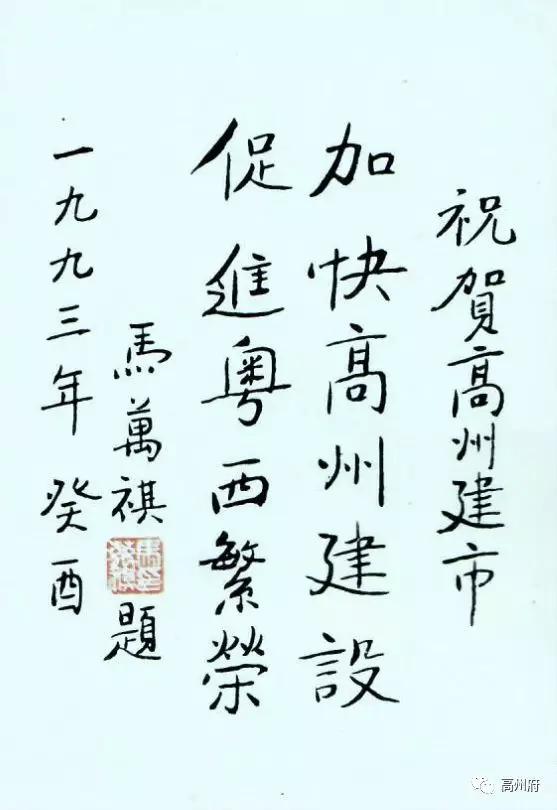 祝賀高州建市
加快高州建設
促進粤西繁榮
馬萬祺題
一九九三年癸酉
高州府